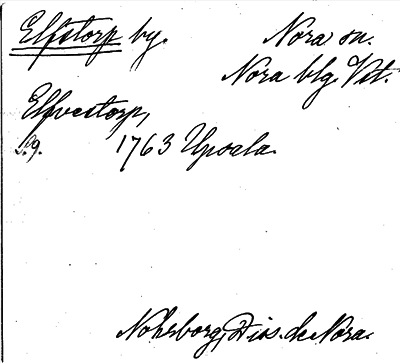 Elfstorp by. Nora sn.
Nora blg Vstm.
Elfvestorp,
S.9. 1763 Upsala.
Nohrborg, Dis. de Nora.